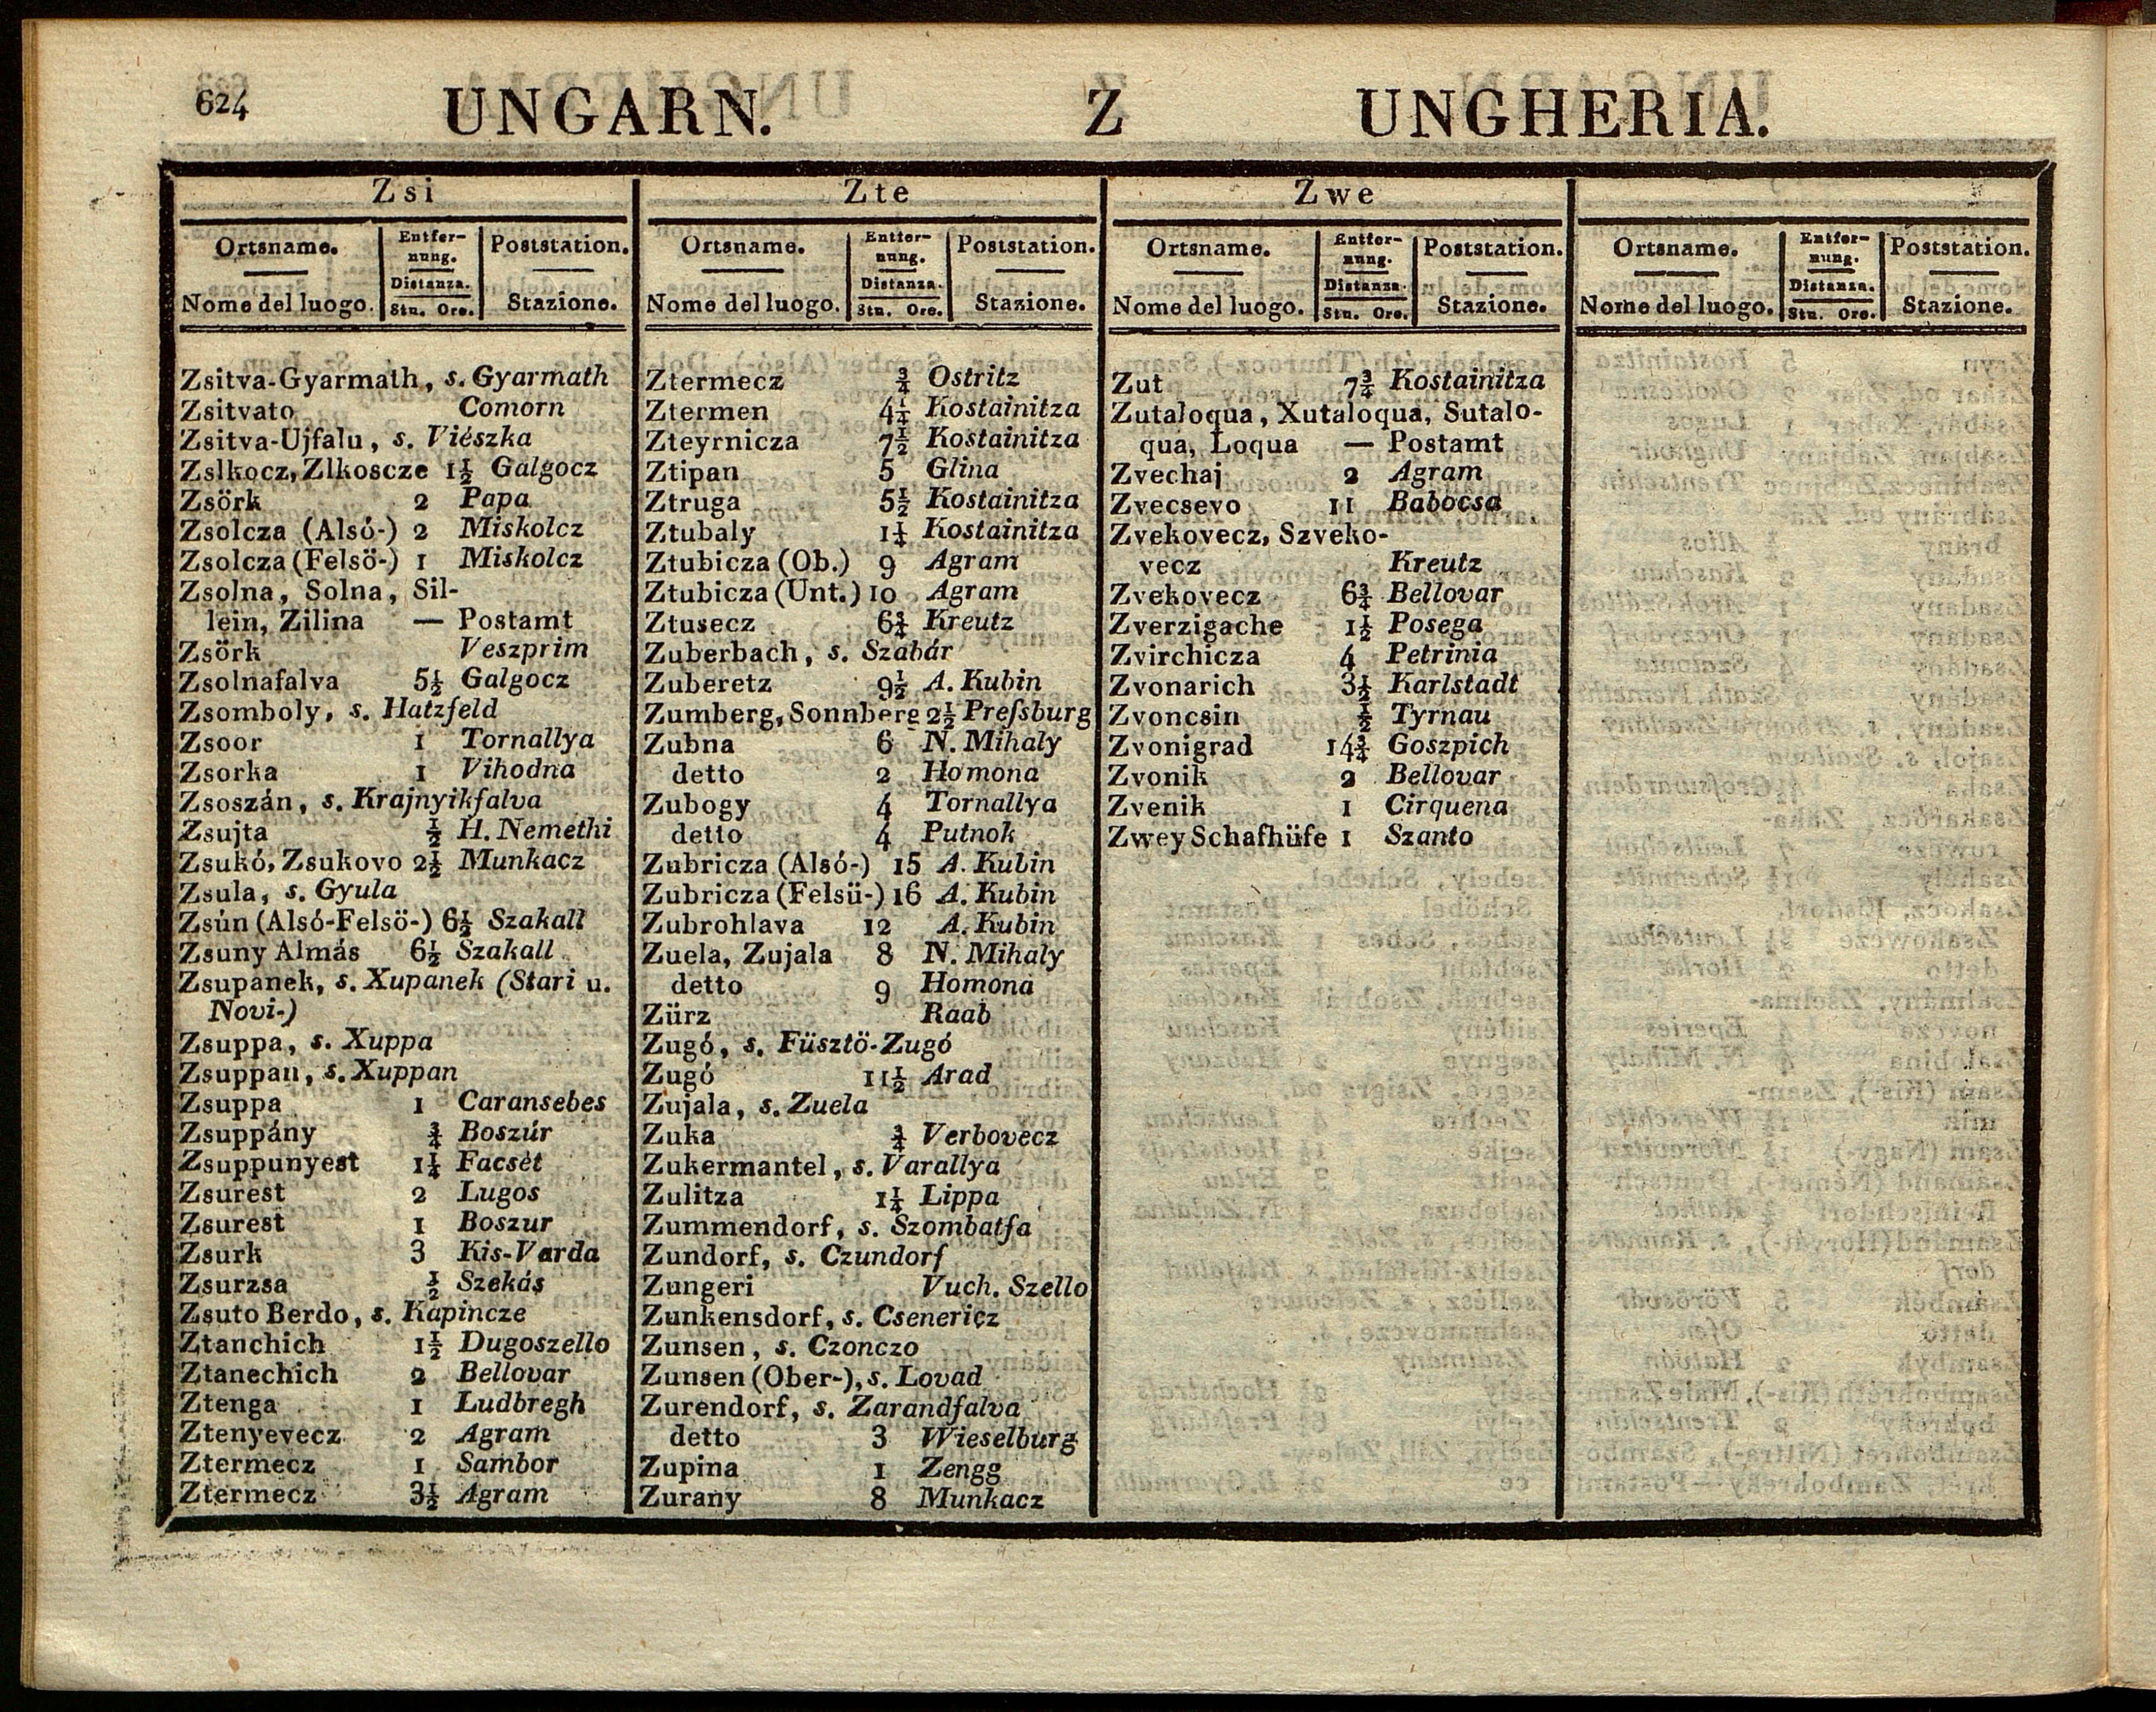 624 UNGARN. Z UNGHERIA.
Zsi
Ortsname. Entfernung. Poststation.
Nome del luogo. Distanza. Stu. Ore. Stazione.
Zsitva-Gyarmath, s. Gyarmath
Zsitvato Comorn
Zsitva-Ujfalu, s. Viészka
Zslkocz, Zlkoscze 1½ Galgocz
Zsörk 2 Papa
Zsolcza (Alsó-) 2 Miskolcz
Zsolcza (Felsö-) 1 Miskolcz
Zsolna, Solna, Sil-
lein, Zilina — Postamt
Zsörk Veszprim
Zsolnafalva 5½ Galgocz
Zsomboly, s. Hatzfeld
Zsoor 1 Tornallya
Zsorka 1 Vihodna
Zsoszán, s. Krajnyikfalva
Zsujta ½ H. Nemethi
Zsukó, Zsukovo 2½ Munkacz
Zsula, s. Gyula
Zsún (Alsó-Felsö-) 6½ Szakall
Zsuny Almás 6½ Szakall
Zsupanek, s. Xupanek (Stari u.
Novi-)
Zsuppa, s. Xuppa
Zsuppan, s. Xuppan
Zsuppa 1 Caransebes
Zsuppány ¾ Boszúr
Zsuppunyest 1¼ Facsét
Zsurest 2 Lugos
Zsurest 1 Boszur
Zsurk 3 Kis-Varda
Zsurzsa ½ Szekás
Zsuto Berdo, s. Kapincze
Ztanchich 1½ Dugoszello
Ztanechich 2 Bellovar
Ztenga 1 Ludbregh
Ztenyevecz 2 Agram
Ztermecz 1 Sambor
Ztermecz 3½ Agram
Zte
Ortsname. Entfernung. Poststation.
Nome del luogo. Distanza. Stu. Ore. Stazione.
Ztermecz ¾ Ostritz
Ztermen 4¼ Kostainitza
Zteyrnicza 7½ Kostainitza
Ztipan 5 Glina
Ztruga 5½ Kostainitza
Ztubaly 1¼ Kostainitza
Ztubicza (Ob.) 9 Agram
Ztubicza (Unt.) 10 Agram
Ztusecz 6¾ Kreutz
Zuberbach, s. Szabár
Zuberetz 9½ A. Kubin
Zumberg, Sonnberg 2½ Preſsburg
Zubna 6 N. Mihaly
detto 2 Homona
Zubogy 4 Tornallya
detto 4 Putnok
Zubricza (Alsó-) 15 A. Kubin
Zubricza (Felsü-) 16 A. Kubin
Zubrohlava 12 A. Kubin
Zuela, Zujala 8 N. Mihaly
detto 9 Homona
Zürz Raab
Zugó, s. Füsztö-Zugó
Zugó 11½ Arad
Zujala, s. Zuela
Zuka ¾ Verbovecz
Zukermantel, s. Varallya
Zulitza 1¼ Lippa
Zummendorf, s. Szombatfa
Zundorf, s. Czundorf
Zungeri Vuch. Szello
Zunkensdorf, s. Csenericz
Zunsen, s. Czonczo
Zunsen (Ober-), s. Lovad
Zurendorf, s. Zarandfalva
detto 3 Wieselburg
Zupina 1 Zengg
Zurany 8 Munkacz
Zwe
Ortsname. Entfernung. Poststation.
Nome del luogo. Distanza. Stu. Ore. Stazione.
Zut 7¾ Kostainitza
Zutaloqua, Xutaloqua, Sutalo-
qua, Loqua — Postamt
Zvechaj 2 Agram
Zvecsevo 11 Babocsa
Zvekovecz, Szveko-
vecz Kreutz
Zvekovecz 6¾ Bellovar
Zverzigache 1½ Posega
Zvirchicza 4 Petrinia
Zvonarich 3½ Karlstadt
Zvoncsin ½ Tyrnau
Zvonigrad 14¾ Goszpich
Zvonik 2 Bellovar
Zvenik 1 Cirquena
Zwey Schafhüfe 1 Szanto
Ortsname. Entfernung. Poststation.
Nome del luogo. Distanza. Stu. Ore. Stazione.